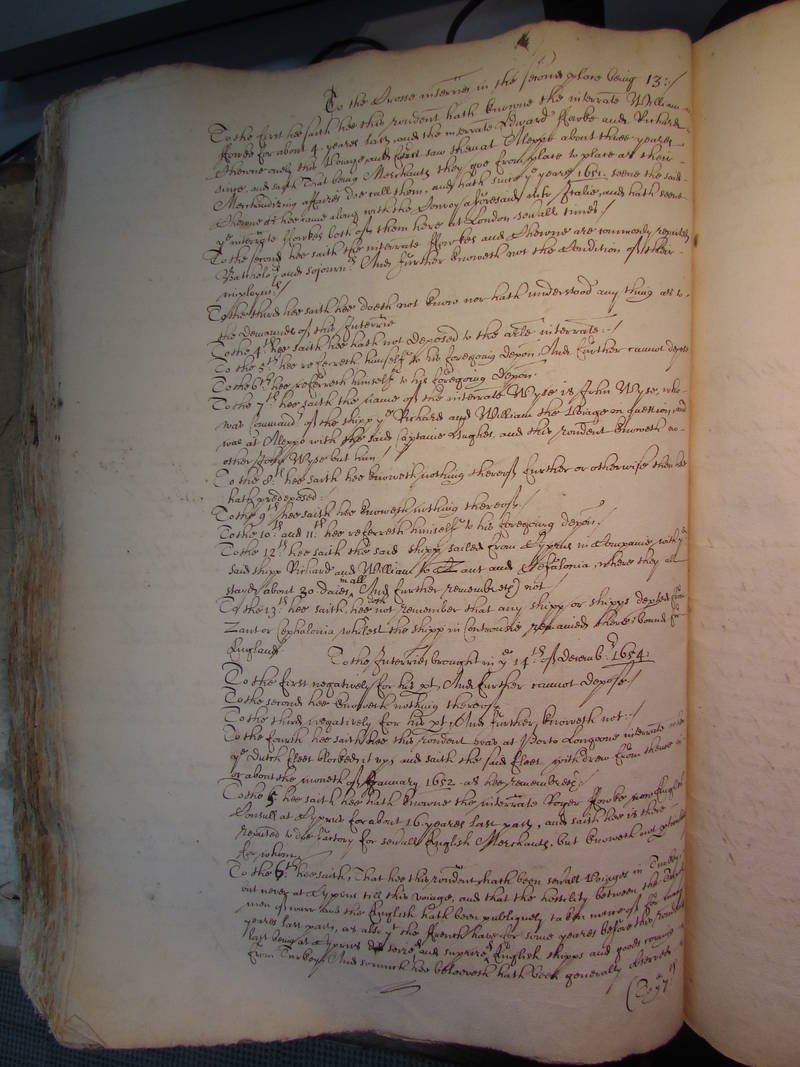 To the Crosse interries in the second place being 13:/
To the first hee saith hee this rondent hath knowne the interrate William
Hawkes for about 4 yeares last, and the interrate Edward Hawke and Richard
Sherone onely this voiage, and first saw them at Aleppo about three yeares
since, and saith That being Merchants they goe from place to place as their
Merchandizing affaires doe call them, and hath since ye yeare 1651 seene the said
Sherone as hee came along with the Convoy aforesaid into Italie, and hath seene
ye interrate Hawkes both of them here at London sevall times/
To the second hee saith the interrate Hawkes and Sherone are commonly reputed
Batchelors and sojourners And further knoweth not the Condition of their
imployment/
To the third hee saith hee doeth not know nor hath understood any thing as to
the demaunds of this Interrie
To the 4th hee saith hee hath not deposed to the arle interrate:/
To the 5th hee referreth himselfe to his foregoing depon, And further cannot depose
To the 6th hee referreth himselfe to his foregoing depon.
To the 7th hee saith the name of the interrate Wyse is John Wyse, who
was Commander of the shipp ye Richard and William the voiage in question, and
was at Aleppo with the said Captaine Hughes, and this rondent knoweth no
other John Wyse but him/
To the 8th hee saith hee knoweth nothing thereof further or otherwise then hee
hath predeposed:
To the 9th hee saith hee knoweth nothing thereof./
To the 10th and 11th hee referreth himselfe to his foregoing depon./
To the 12th hee saith the said shipp sailed from Cyprus in Companie with ye
said shipp Richard and William to Zant and Cefalonia, where they all
stayed about 30 daies in all, And further remembreth not/
To the 13th hee saith, hee doth not remember that any shipp or shipps depted from
Zant or Cephalonia whilest the shipp in Controversie remained there bound for
England
To the Interries brought in ye 14th of Decemb: 1654:
To the first negatively for his pt, And further cannot depose/
To the second hee knoweth nothing thereof/
To the third negatively for his pt, And further knoweth not:/
To the fourth hee saith hee this rondent was at Porto Longone interrate when
ye Dutch fleet blocked it up, and saith the said fleet withdrew from thence in
or about the moneth of January 1652 as hee remembreth/
To the 5 hee saith hee hath knowne the interrate Roger Fowke now English
Consull at Cyprus for about 16 yeares last past, and saith hee is there
reputed to doe factory for sevall English Merchants, but knoweth not
for whom/
To the 6th hee saith, That hee this rondent hath been sevall voiages in Turkey
but never at Cyprus till this voiage, and that the hostility between the Dutch
men of warr and the English hath been publiquely taken notice of for
yeares last past, as also yt the french have for some yeares before this rondents
last being at Cyprus seized and surprized English shipps and goods coming
from Turkey, And somuch hee beleeveth hath been generally observed
(To ye 7th